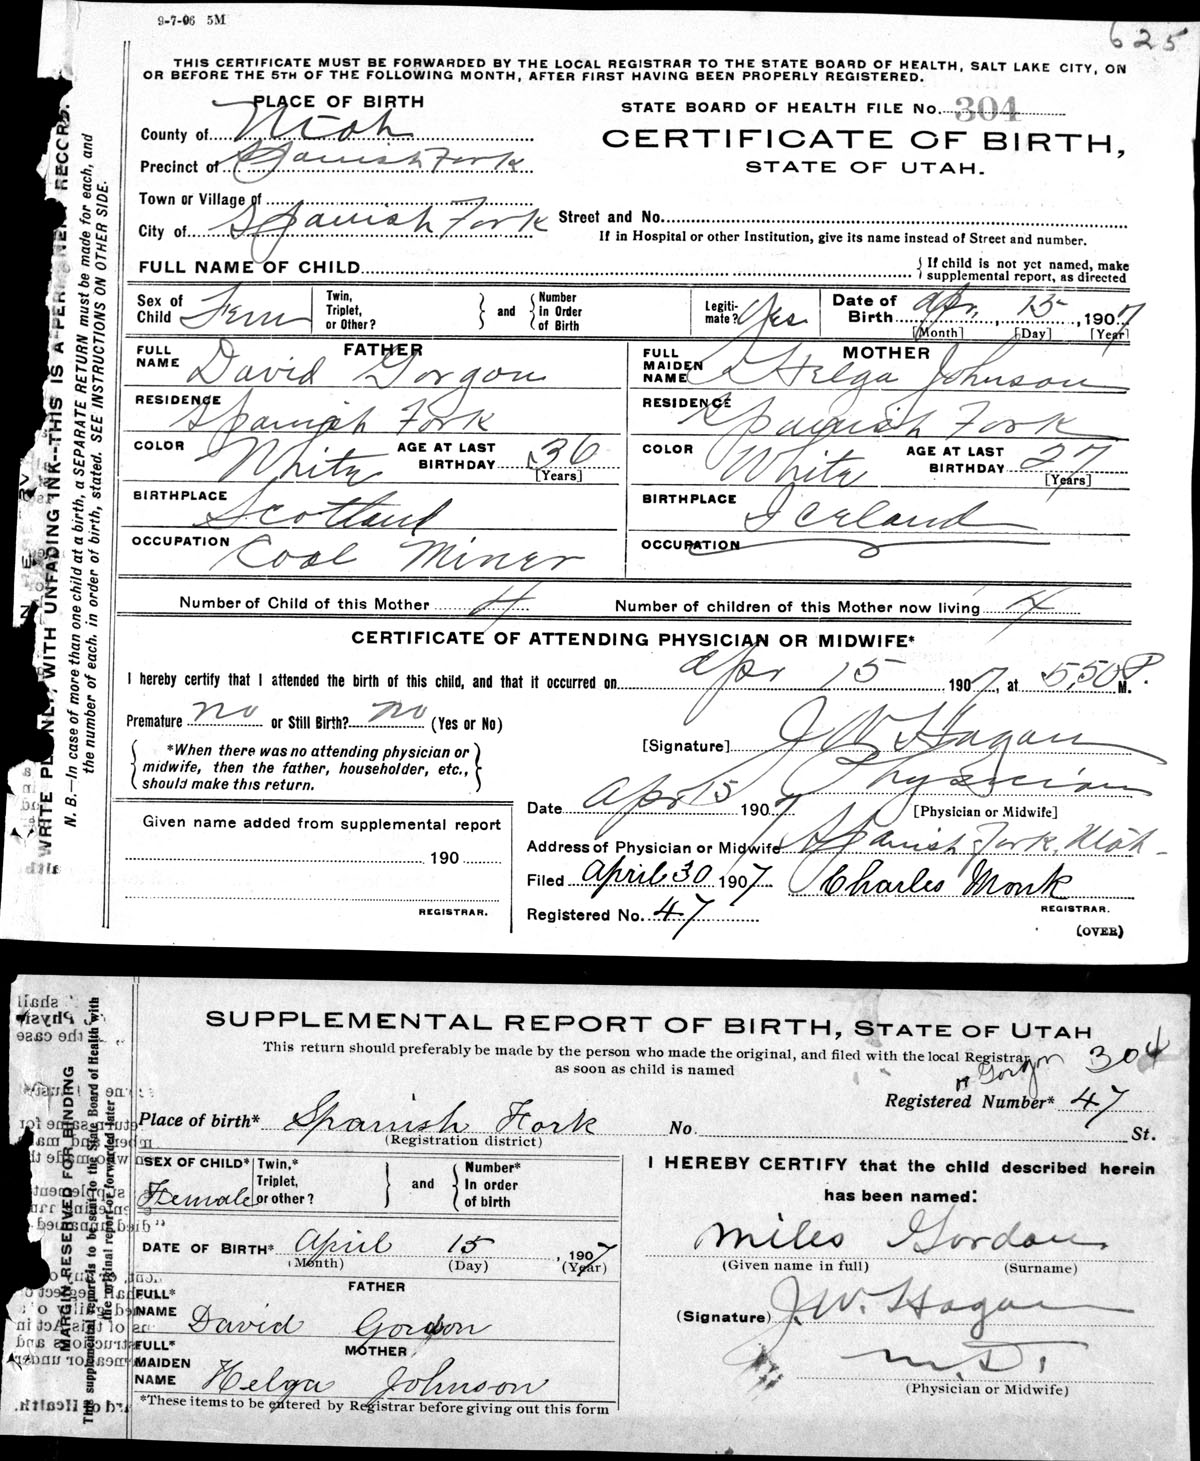 9-7-06 5M
625
THIS CERTIFICATE MUST BE FORWARDED BY THE LOCAL REGISTRAR TO THE STATE BOARD OF HEALTH, SALT LAKE CITY, ON
OR BEFORE THE 5TH OF THE FOLLOWING MONTH, AFTER FIRST HAVING BEEN PROPERLY REGISTERED.
PLACE OF BIRTH
STATE BOARD OF HEALTH FILE No. 304
County of Utah
CERTIFICATE OF BIRTH,
Precinct of Spanish Fork
STATE OF UTAH.
Town or Village of
City of Spanish Fork
Street and No.
If in Hospital or other Institution, give its name instead of Street and number.
FULL NAME OF CHILD
{ If child is not yet named, make
supplemental report, as directed
Sex of Child Fem
Twin, Triplet, or Other? } and { Number In Order of Birth
Legiti-mate? Yes
Date of Birth Apr, 15, 1907
[Month] [Day] [Year]
FATHER
FULL NAME David Gorgon
RESIDENCE Spanish Fork
COLOR White AGE AT LAST BIRTHDAY 36 [Years]
BIRTHPLACE Scotland
OCCUPATION Coal Miner
MOTHER
FULL MAIDEN NAME Helga Johnson
RESIDENCE Spanish Fork
COLOR White AGE AT LAST BIRTHDAY 27 [Years]
BIRTHPLACE Iceland
OCCUPATION
Number of Child of this Mother 4 Number of children of this Mother now living 4
CERTIFICATE OF ATTENDING PHYSICIAN OR MIDWIFE*
I hereby certify that I attended the birth of this child, and that it occurred on Apr 15 1907, at 5,50 P. M.
Premature no or Still Birth? no (Yes or No)
[Signature] J W Hagan
{ *When there was no attending physician or
midwife, then the father, householder, etc.,
should make this return. }
Physician
Date Apr 15 1907 [Physician or Midwife]
Given name added from supplemental report
190
REGISTRAR.
Address of Physician or Midwife Spanish Fork, Utah
Filed April 30 1907 Charles Monk
REGISTRAR.
Registered No. 47
(OVER)
WRITE PLAINLY, WITH UNFADING INK--THIS IS A PERMANENT RECORD.
N. B.--In case of more than one child at a birth, a SEPARATE RETURN must be made for each, and
the number of each, in order of birth, stated. SEE INSTRUCTIONS ON OTHER SIDE.
SUPPLEMENTAL REPORT OF BIRTH, STATE OF UTAH
This return should preferably be made by the person who made the original, and filed with the local Registrar
as soon as child is named
304
Gorgon
Registered Number* 47
Place of birth* Spanish Fork No. St.
(Registration district)
SEX OF CHILD* Female
Twin,* Triplet, or other? } and { Number* In order of birth
DATE OF BIRTH* April 15, 1907
(Month) (Day) (Year)
FATHER
FULL* NAME David Gordon
MOTHER
FULL* MAIDEN NAME Helga Johnson
*These items to be entered by Registrar before giving out this form
I HEREBY CERTIFY that the child described herein
has been named:
Miles Gordon
(Given name in full) (Surname)
(Signature) J. W. Hagan
M.D.
(Physician or Midwife)
MARGIN RESERVED FOR BINDING
This supplemental report is to be sent to the State Board of Health with
the original report or forwarded later